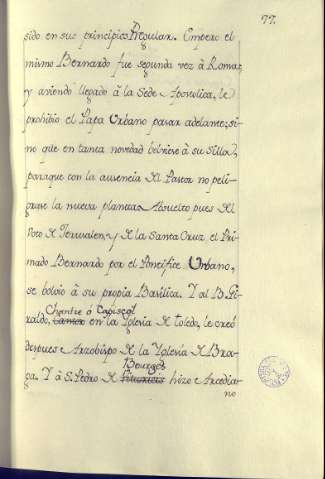 77.
sido en sus principios Regular. Empero el
mismo Bernardo fue segunda vez à Roma,
y aviendo llegado à la Sede Apostolica, le
prohibio el Papa Urbano pasar adelante; si
no que en tanta novedad bolviese à su Silla,
paraque con la ausencia del Pastor no peli-
grase la nueva planta. Absuelto pues del
Voto de Jerusalen, y de la Santa Cruz el Pri-
mado Bernardo por el Pontifice Urbano,
se bolvio à su propia Basilica. Y al B. Gi-
Chantre ò Capiscol
raldo, Cantor en la Iglesia de Toledo, le creó
despues Arzobispo de la Iglesia de Bra-
Bourges
ga. Y à S. Pedro de hizo Arcedia-
no